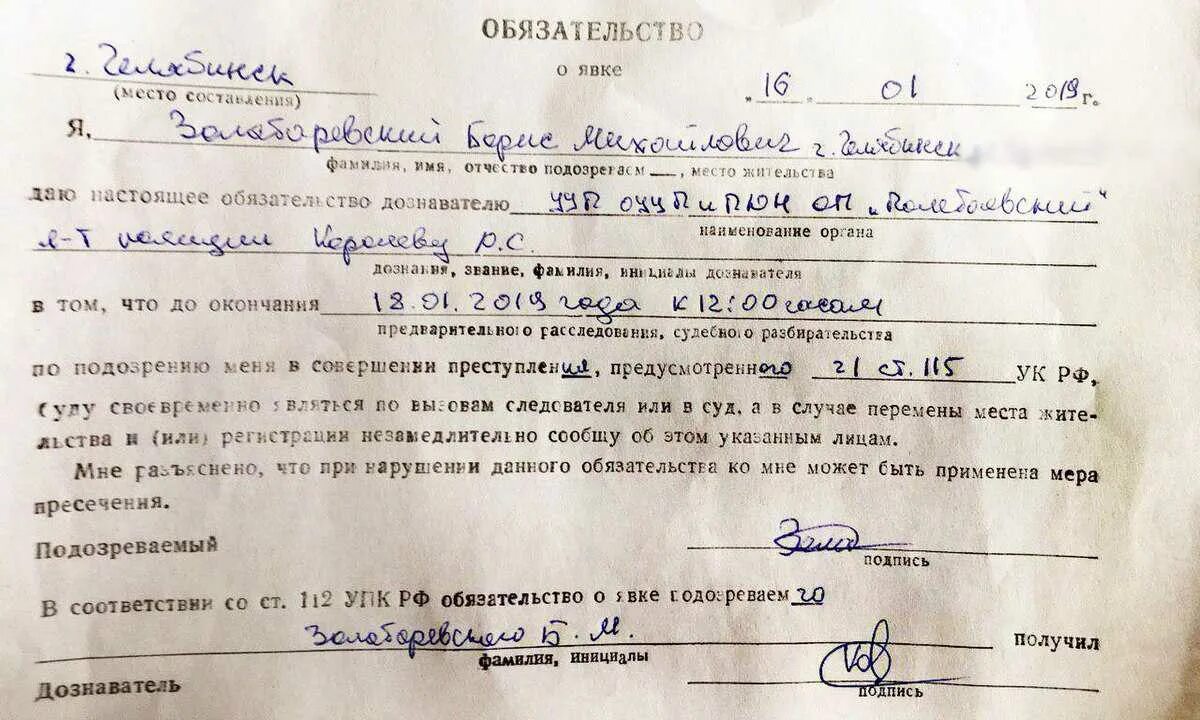 ОБЯЗАТЕЛЬСТВО
о явке
г. Челябинск
(место составления)
„16 . 01 2019 г.
Я, Золотаревский Борис Михайлович г. Челябинск
фамилия, имя, отчество подозреваем , место жительства
даю настоящее обязательство дознавателю УУП ОУУП и ПДН ОП
наименование органа
л-т полиции Королеву Р.С.
дознания, звание, фамилия, инициалы дознавателя
в том, что до окончания 18.01.2019 года к 12:00 часам
предварительного расследования, судебного разбирательства
по подозрению меня в совершении преступления, предусмотренного ст. 115 УК РФ,
буду своевременно являться по вызовам следователя или в суд, а в случае перемены места жите-
льства и (или) регистрации незамедлительно сообщу об этом указанным лицам.
Мне разъяснено, что при нарушении данного обязательства ко мне может быть применена мера
пресечения.
Подозреваемый
подпись
В соответствии со ст. 112 УПК РФ обязательство о явке подозреваемого
Золотаревского Б. М. получил
фамилия, инициалы
Дознаватель
подпись